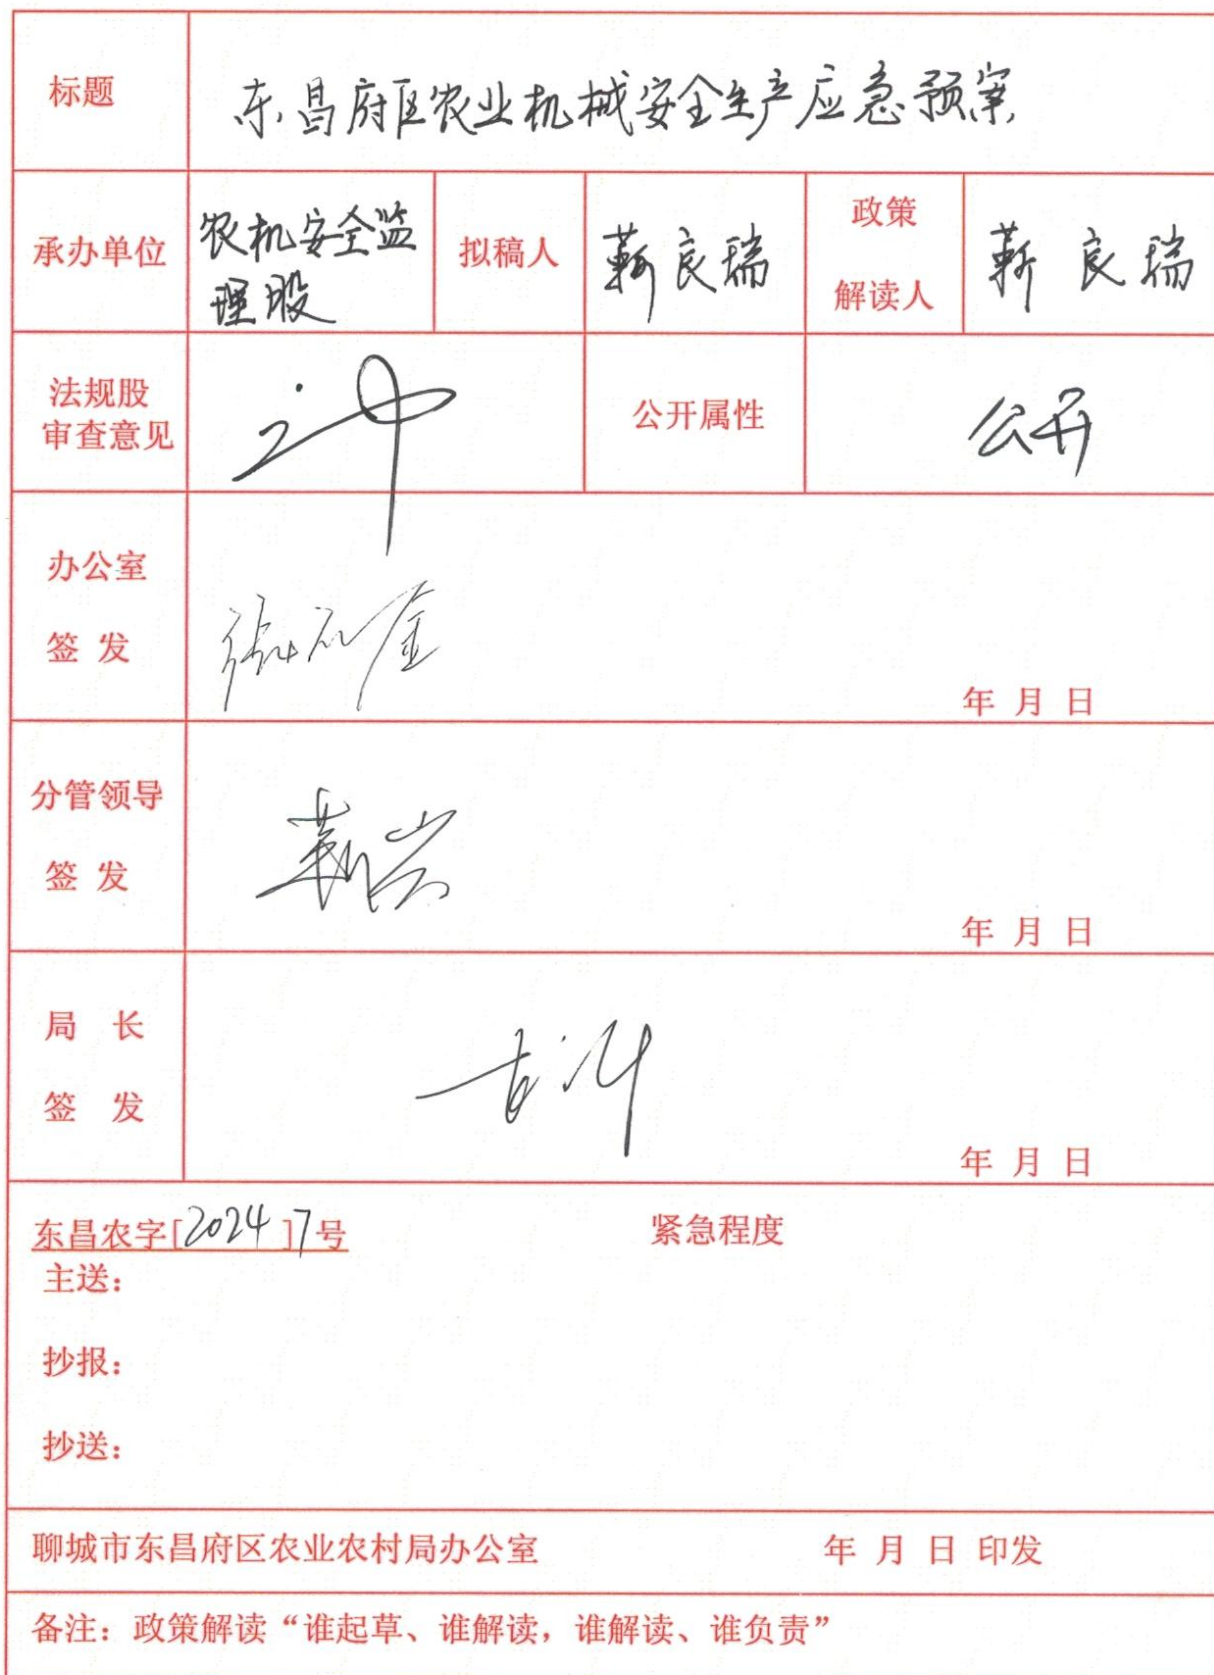 标题
东昌府区农业机械安全生产应急预案
承办单位
农机安全监
理股
拟稿人
靳良瑞
政策
解读人
靳良瑞
法规股
审查意见
公开属性
公开
办公室
签 发
年 月 日
分管领导
签 发
年 月 日
局 长
签 发
年 月 日
东昌农字[2024]7号
紧急程度
主送:
抄报:
抄送:
聊城市东昌府区农业农村局办公室
年 月 日 印发
备注:政策解读“谁起草、谁解读,谁解读、谁负责”